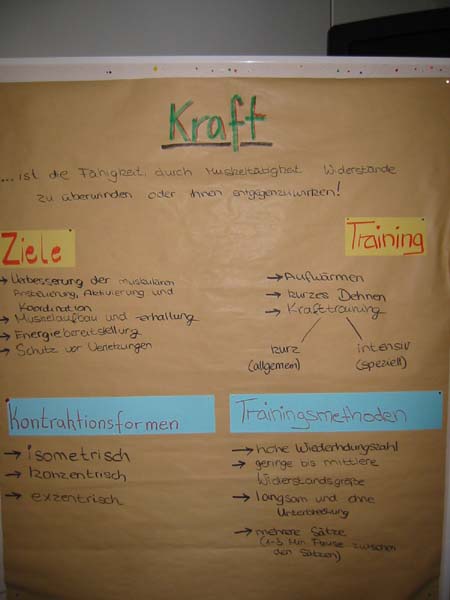 Kraft
...ist die Fähigkeit, durch Muskeltätigkeit Widerstände
zu überwinden oder ihnen entgegenzuwirken!
Ziele
→ Verbesserung der muskulären
Ansteuerung, Aktivierung und
Koordination
→ Muskelaufbau und -erhaltung
→ Energiebereitstellung
→ Schutz vor Verletzungen
Training
→ Aufwärmen
→ kurzes Dehnen
→ Krafttraining
kurz
(allgemein)
intensiv
(speziell)
Kontraktionsformen
→ isometrisch
→ konzentrisch
→ exzentrisch
Trainingsmethoden
→ hohe Wiederholungszahl
→ geringe bis mittlere
Widerstandsgröße
→ langsam und ohne
Unterbrechung
→ mehrere Sätze
(1-3 Min Pause zwischen
den Sätzen)